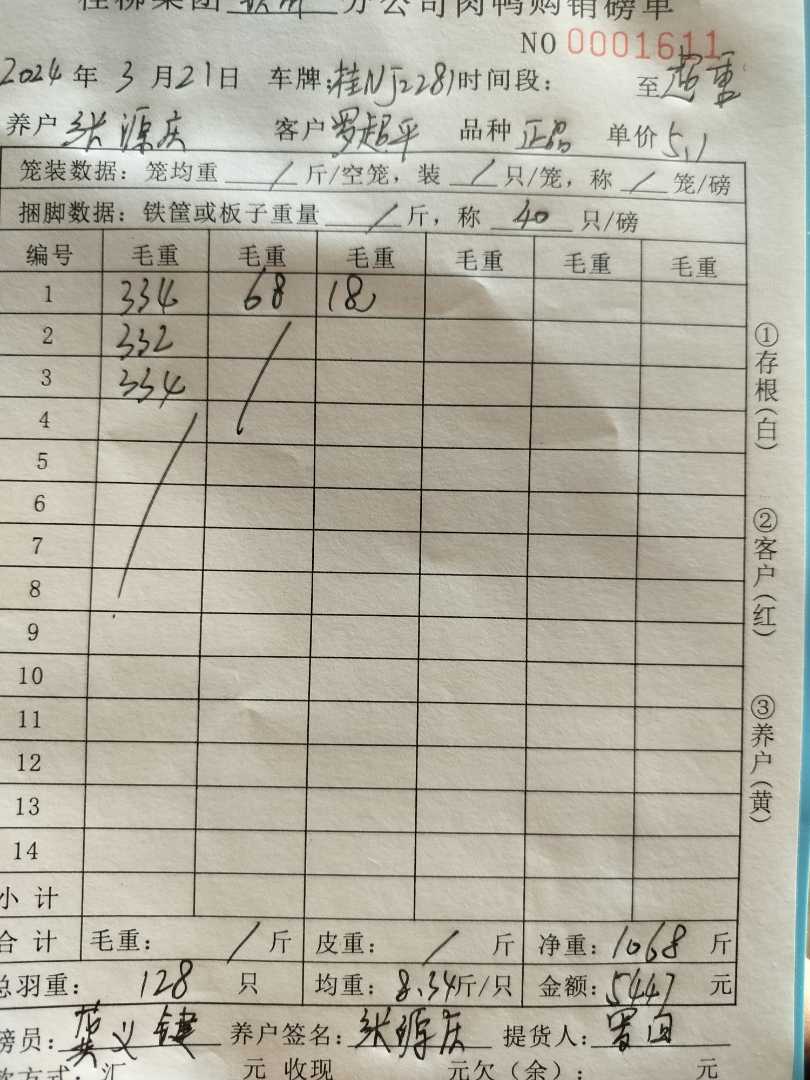 桂柳集团 分公司肉鸭购销磅单
NO 0001611
2024 年 3 月 21 日 车牌: 桂NJ2281 时间段: 至 超重
养户 张源庆 客户 罗超平 品种 正品 单价 5.1
笼装数据: 笼均重 / 斤/空笼, 装 / 只/笼, 称 / 笼/磅
捆脚数据: 铁筐或板子重量 / 斤, 称 40 只/磅
编号 毛重 毛重 毛重 毛重 毛重 毛重
1 334 68 18
2 332 /
3 334
4 /
5
6
7
8
9
10
11
12
13
14
小 计
合 计 毛重: / 斤 皮重: / 斤 净重: 1068 斤
总羽重: 128 只 均重: 8.34 斤/只 金额: 5447 元
磅员: 黄义键 养户签名: 张源庆 提货人: 罗
款方式: 汇 元 收现 元欠(余): 元
①存根(白)
②客户(红)
③养户(黄)